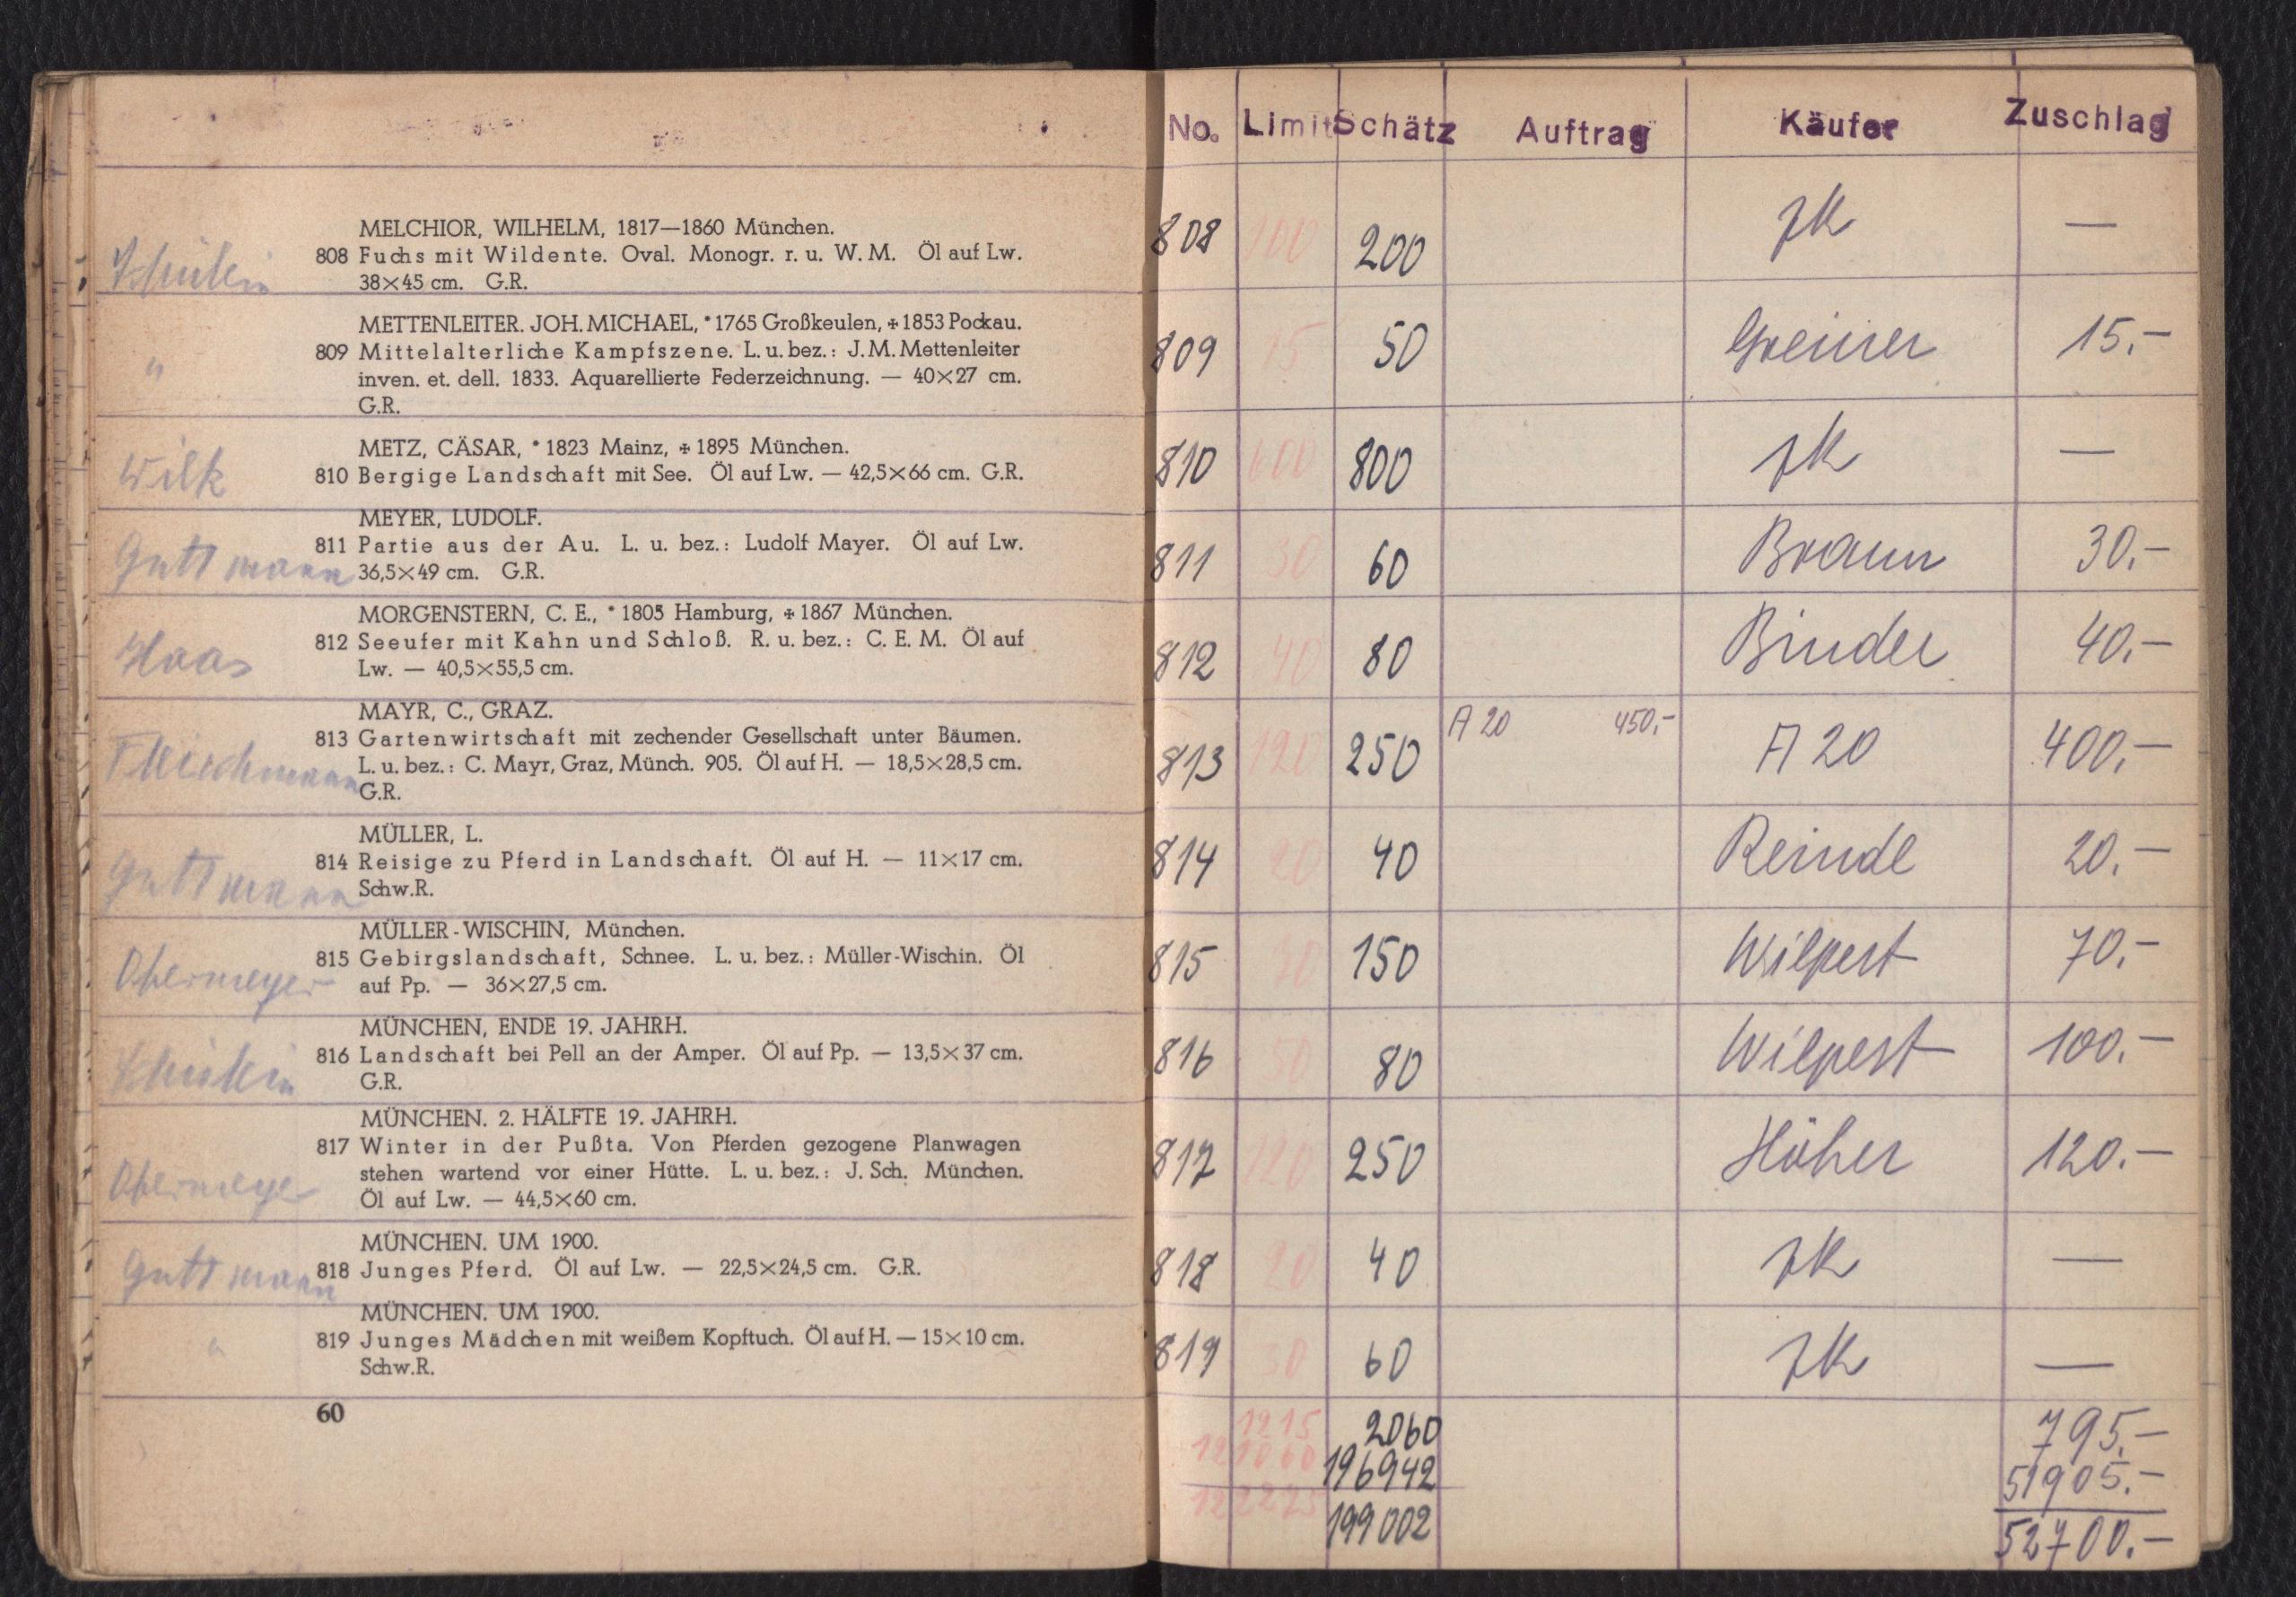 No. Limit Schätz Auftrag Käufer Zuschlag
MELCHIOR, WILHELM, 1817—1860 München.
808 Fuchs mit Wildente. Oval. Monogr. r. u. W. M. Öl auf Lw.
38×45 cm. G.R.
808 100 200 —
METTENLEITER. JOH. MICHAEL, *1765 Großkeulen, ✠1853 Pockau.
" 809 Mittelalterliche Kampfszene. L. u. bez.: J. M. Mettenleiter
inven. et. dell. 1833. Aquarellierte Federzeichnung. — 40×27 cm.
G.R.
809 15 50 Greiner 15.-
METZ, CÄSAR, *1823 Mainz, ✠1895 München.
Wilk 810 Bergige Landschaft mit See. Öl auf Lw. — 42,5×66 cm. G.R.
810 600 800 —
MEYER, LUDOLF.
Guttmann 811 Partie aus der Au. L. u. bez.: Ludolf Mayer. Öl auf Lw.
36,5×49 cm. G.R.
811 30 60 Braun 30.-
MORGENSTERN, C. E., *1805 Hamburg, ✠1867 München.
Haas 812 Seeufer mit Kahn und Schloß. R. u. bez.: C. E. M. Öl auf
Lw. — 40,5×55,5 cm.
812 40 80 Binder 40.-
MAYR, C., GRAZ.
Fleischmann 813 Gartenwirtschaft mit zechender Gesellschaft unter Bäumen.
L. u. bez.: C. Mayr, Graz, Münch. 905. Öl auf H. — 18,5×28,5 cm.
G.R.
813 120 250 A 20 450.- A 20 400.-
MÜLLER, L.
Guttmann 814 Reisige zu Pferd in Landschaft. Öl auf H. — 11×17 cm.
Schw.R.
814 20 40 Reindl 20.-
MÜLLER-WISCHIN, München.
Obermeyer 815 Gebirgslandschaft, Schnee. L. u. bez.: Müller-Wischin. Öl
auf Pp. — 36×27,5 cm.
815 150 Wilpert 70.-
MÜNCHEN, ENDE 19. JAHRH.
816 Landschaft bei Pell an der Amper. Öl auf Pp. — 13,5×37 cm.
G.R.
816 50 80 Wilpert 100.-
MÜNCHEN. 2. HÄLFTE 19. JAHRH.
Obermeyer 817 Winter in der Pußta. Von Pferden gezogene Planwagen
stehen wartend vor einer Hütte. L. u. bez.: J. Sch. München.
Öl auf Lw. — 44,5×60 cm.
817 120 250 Höher 120.-
MÜNCHEN. UM 1900.
Guttmann 818 Junges Pferd. Öl auf Lw. — 22,5×24,5 cm. G.R.
818 20 40 —
MÜNCHEN. UM 1900.
" 819 Junges Mädchen mit weißem Kopftuch. Öl auf H. — 15×10 cm.
Schw.R.
819 30 60 —
60
1215 2060 795.-
196942 51905.-
199002 52700.-